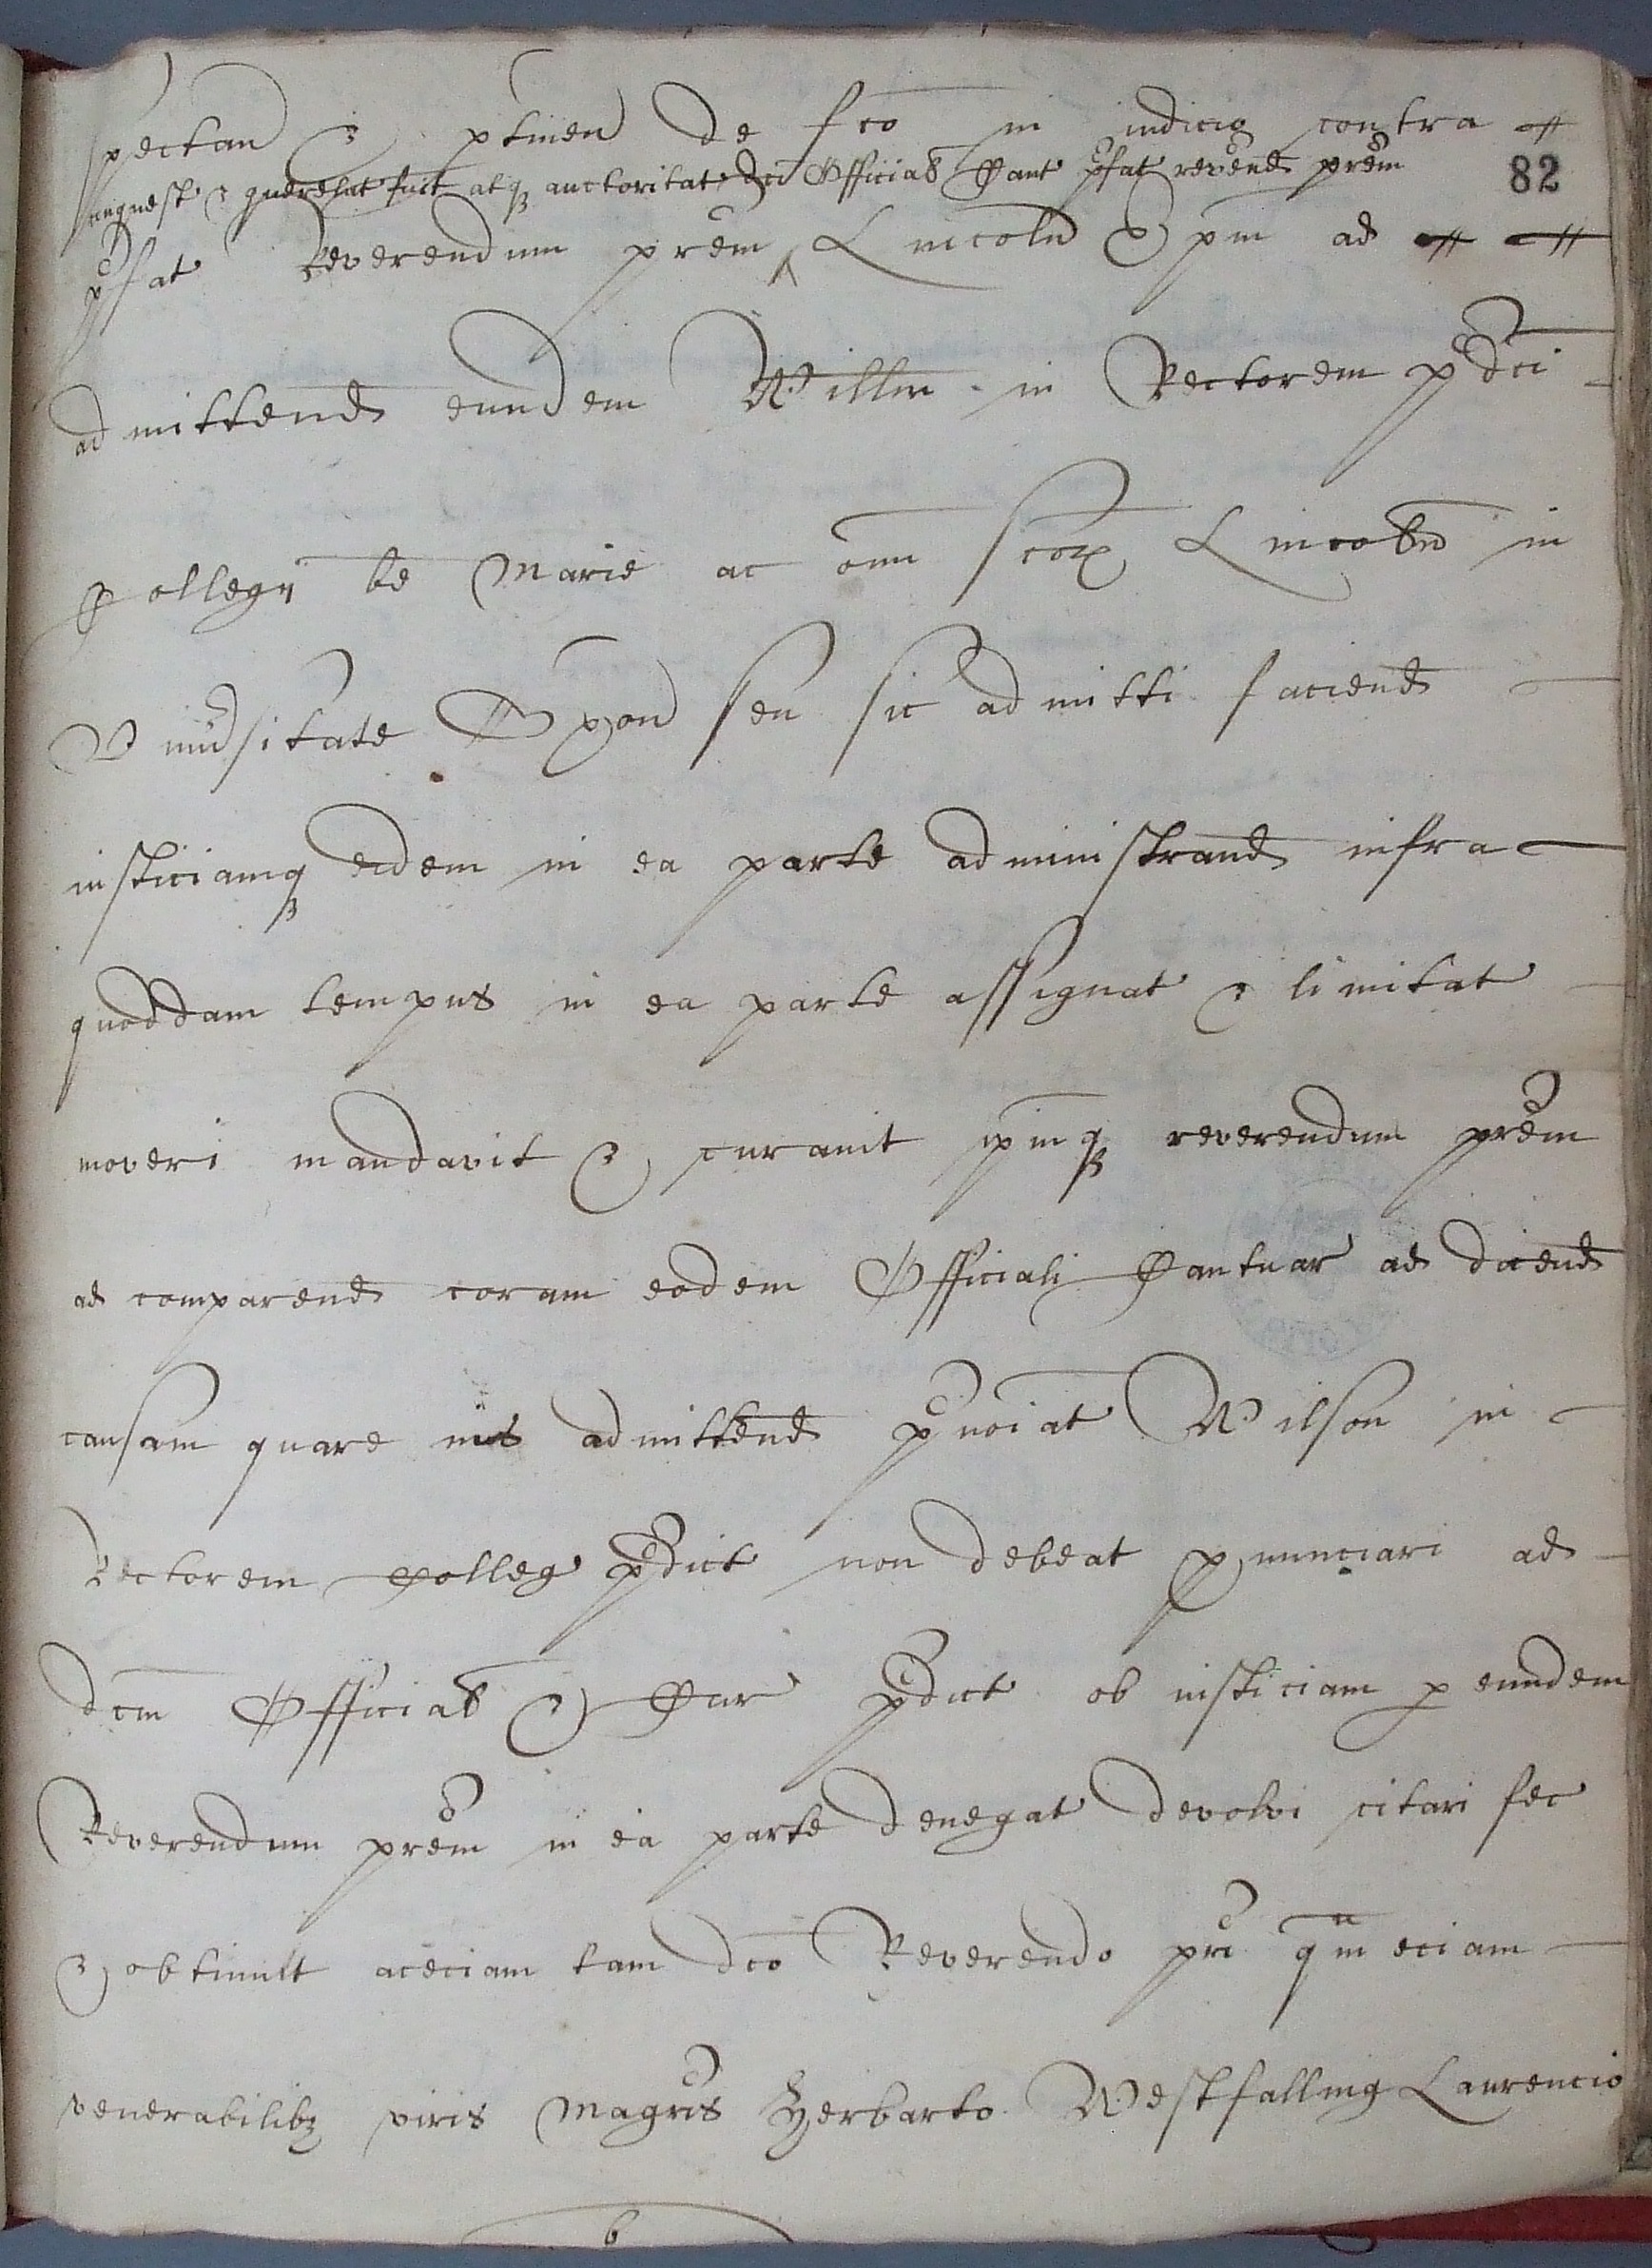 spectan et ptinen de fco in iudicio contra
82
inquest et querelat fuit atq auctoritat dci Official Cant pfat revend prem
pfat Reverendum prem ^ Lincoln Epm ad
admittend eundem Willm in Rectorem pdci
Collegij be Marie ac omn scor Lincoln in
Universitate Oxon seu sic admitti faciend
iusticiamq eidem in ea parte administrand infra
quoddam tempus in ea parte assignat et limitat
moveri mandavit et curauit ipmq reverendum prem
ad comparend coram eodem Officiali Cantuar ad dicend
causam quare ius admittend pnoiat Wilson in
Rectorem Colleg pdict non debeat pnunciari ad
dcm Official et Cur pdict ob iusticiam p eundem
Reverendum prem in ea parte denegat devolvi citari fec
et obtinuit aceciam tam dco Reverendo pri qm eciam
venerabilibz viris Magris Herbarto Westfalling Laurencio
b